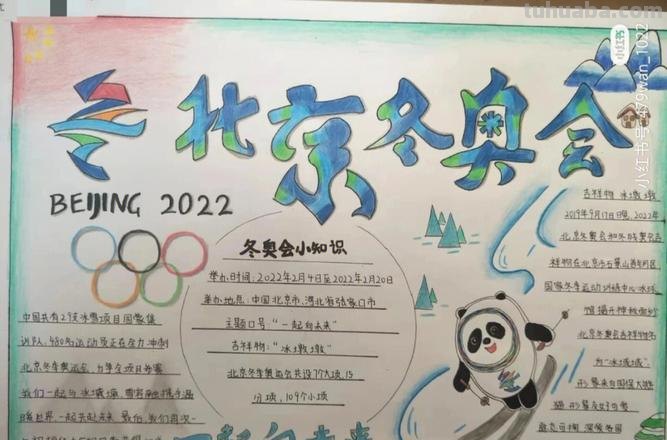 tuhuaba.com
小红书
小红书号:479wan_1022
北京冬奥会
BEIJING 2022
冬奥会小知识
举办时间:2022年2月4日至2022年2月20日
举办地点:中国北京市、河北省张家口市
主题口号:"一起向未来"
吉祥物:"冰墩墩"
北京冬季奥运会共设7大项,15
分项,109个小项
一起向未来
中国共有27支冰雪项目国家集
训队,480名运动员正在全力冲刺
北京冬季奥运会,力争全项目参赛
我们一起与冰墩墩,雪容融携手温
暖世界,一起去未来 最后,我们再次一
吉祥物 冰墩墩
2019年9月17日晚,2022年
北京冬奥会和冬残奥会吉
祥物在北京市石景山首钢园区
国家冬季运动训练中心冰球
馆揭开神秘面纱
北京冬奥会吉祥物名
为"冰墩墩"
形象来自国宝大熊
猫